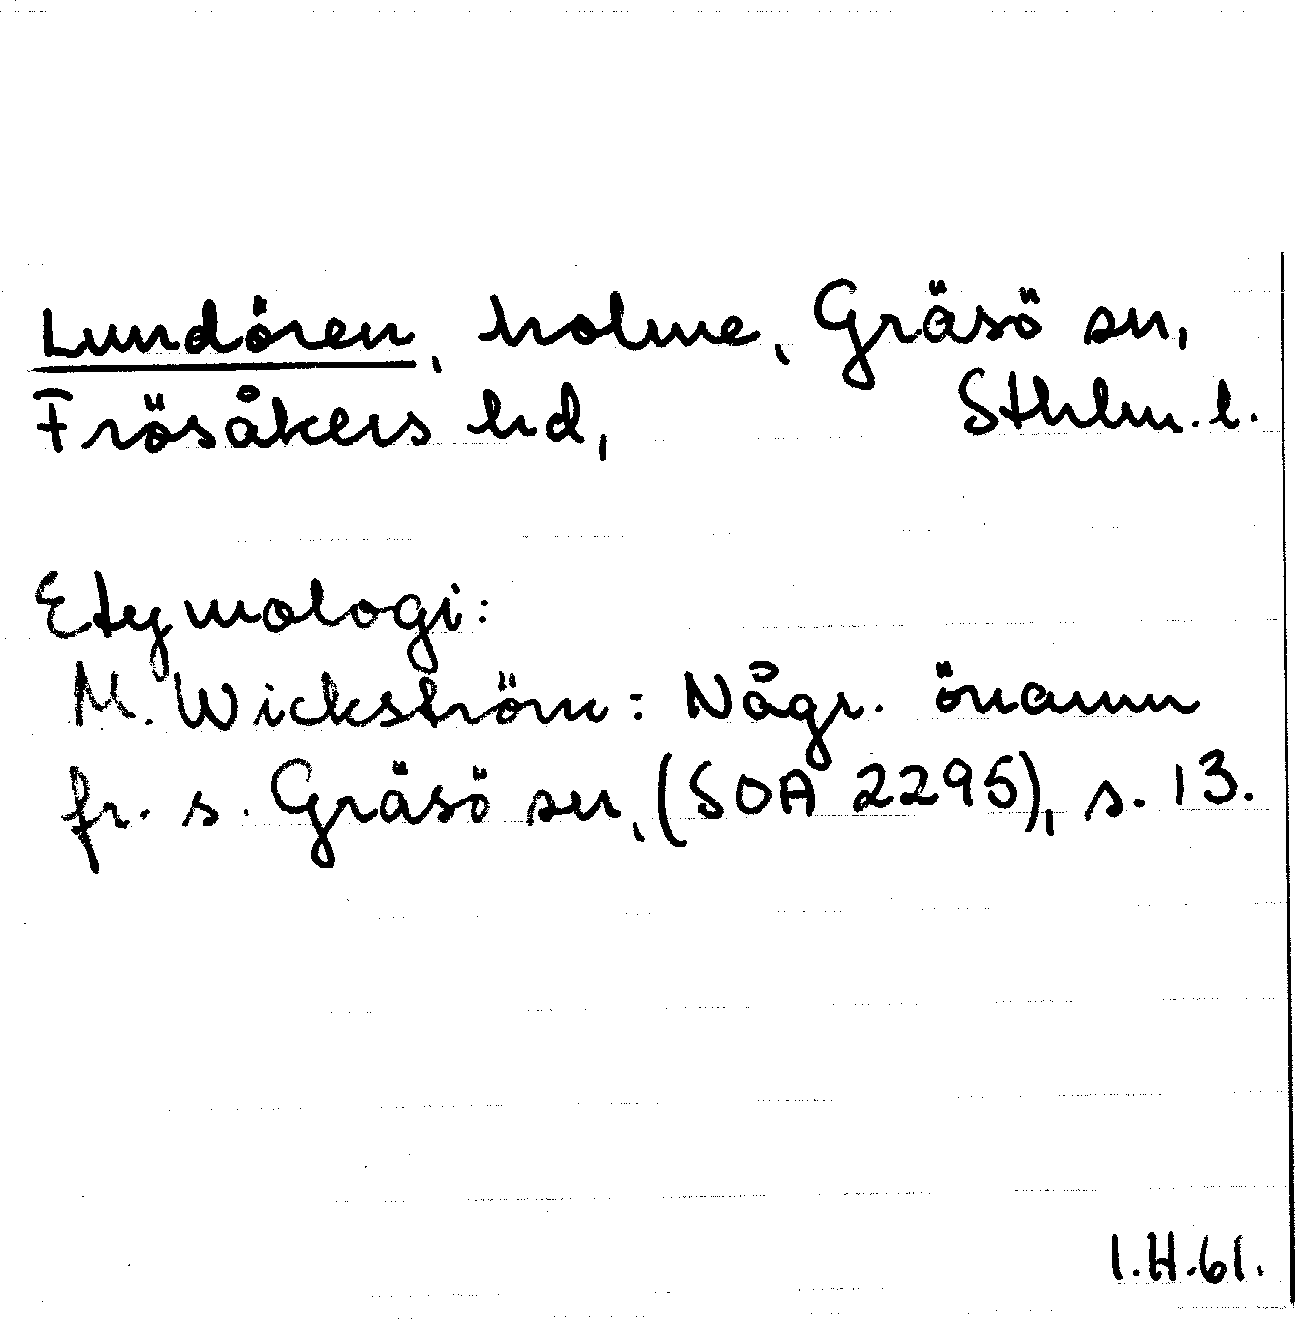 Lundören, holme, Gräsö sn,
Frösåkers hd, Sthlm. l.
Etymologi:
M. Wickström: Någr. önamn
fr. s. Gräsö sn, (SOA 2295), s. 13.
I.H.61.